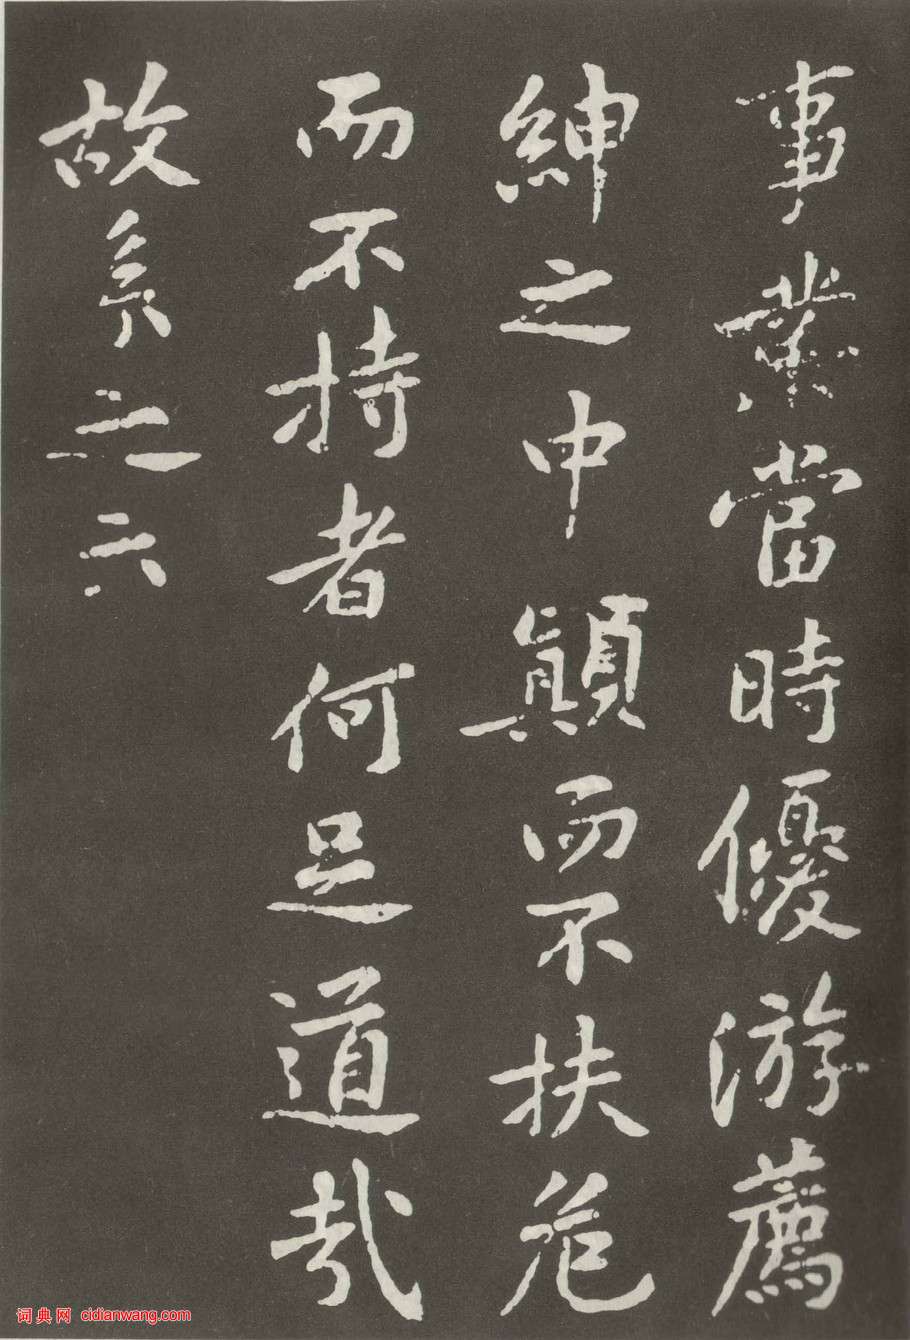 事業當時優游薦
紳之中顛而不扶危
而不持者何足道哉
故系之六
词典网 cidianwang.com